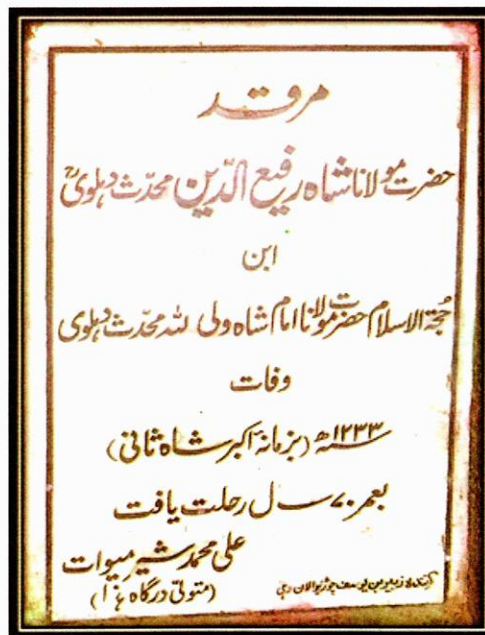 مرقد
حضرت مولانا شاہ رفیع الدّین محدّث دہلویؒ
ابن
حُجۃ الاسلام حضرت مولانا امام شاہ ولی اللہ محدّث دہلوی
وفات
۱۲۳۳ھ (بزمانہ اکبر شاہ ثانی)
بعمر ۷۰ سال رحلت یافت
علی محمد شیر میوات
(متولّی درگاہ ہٰذا)